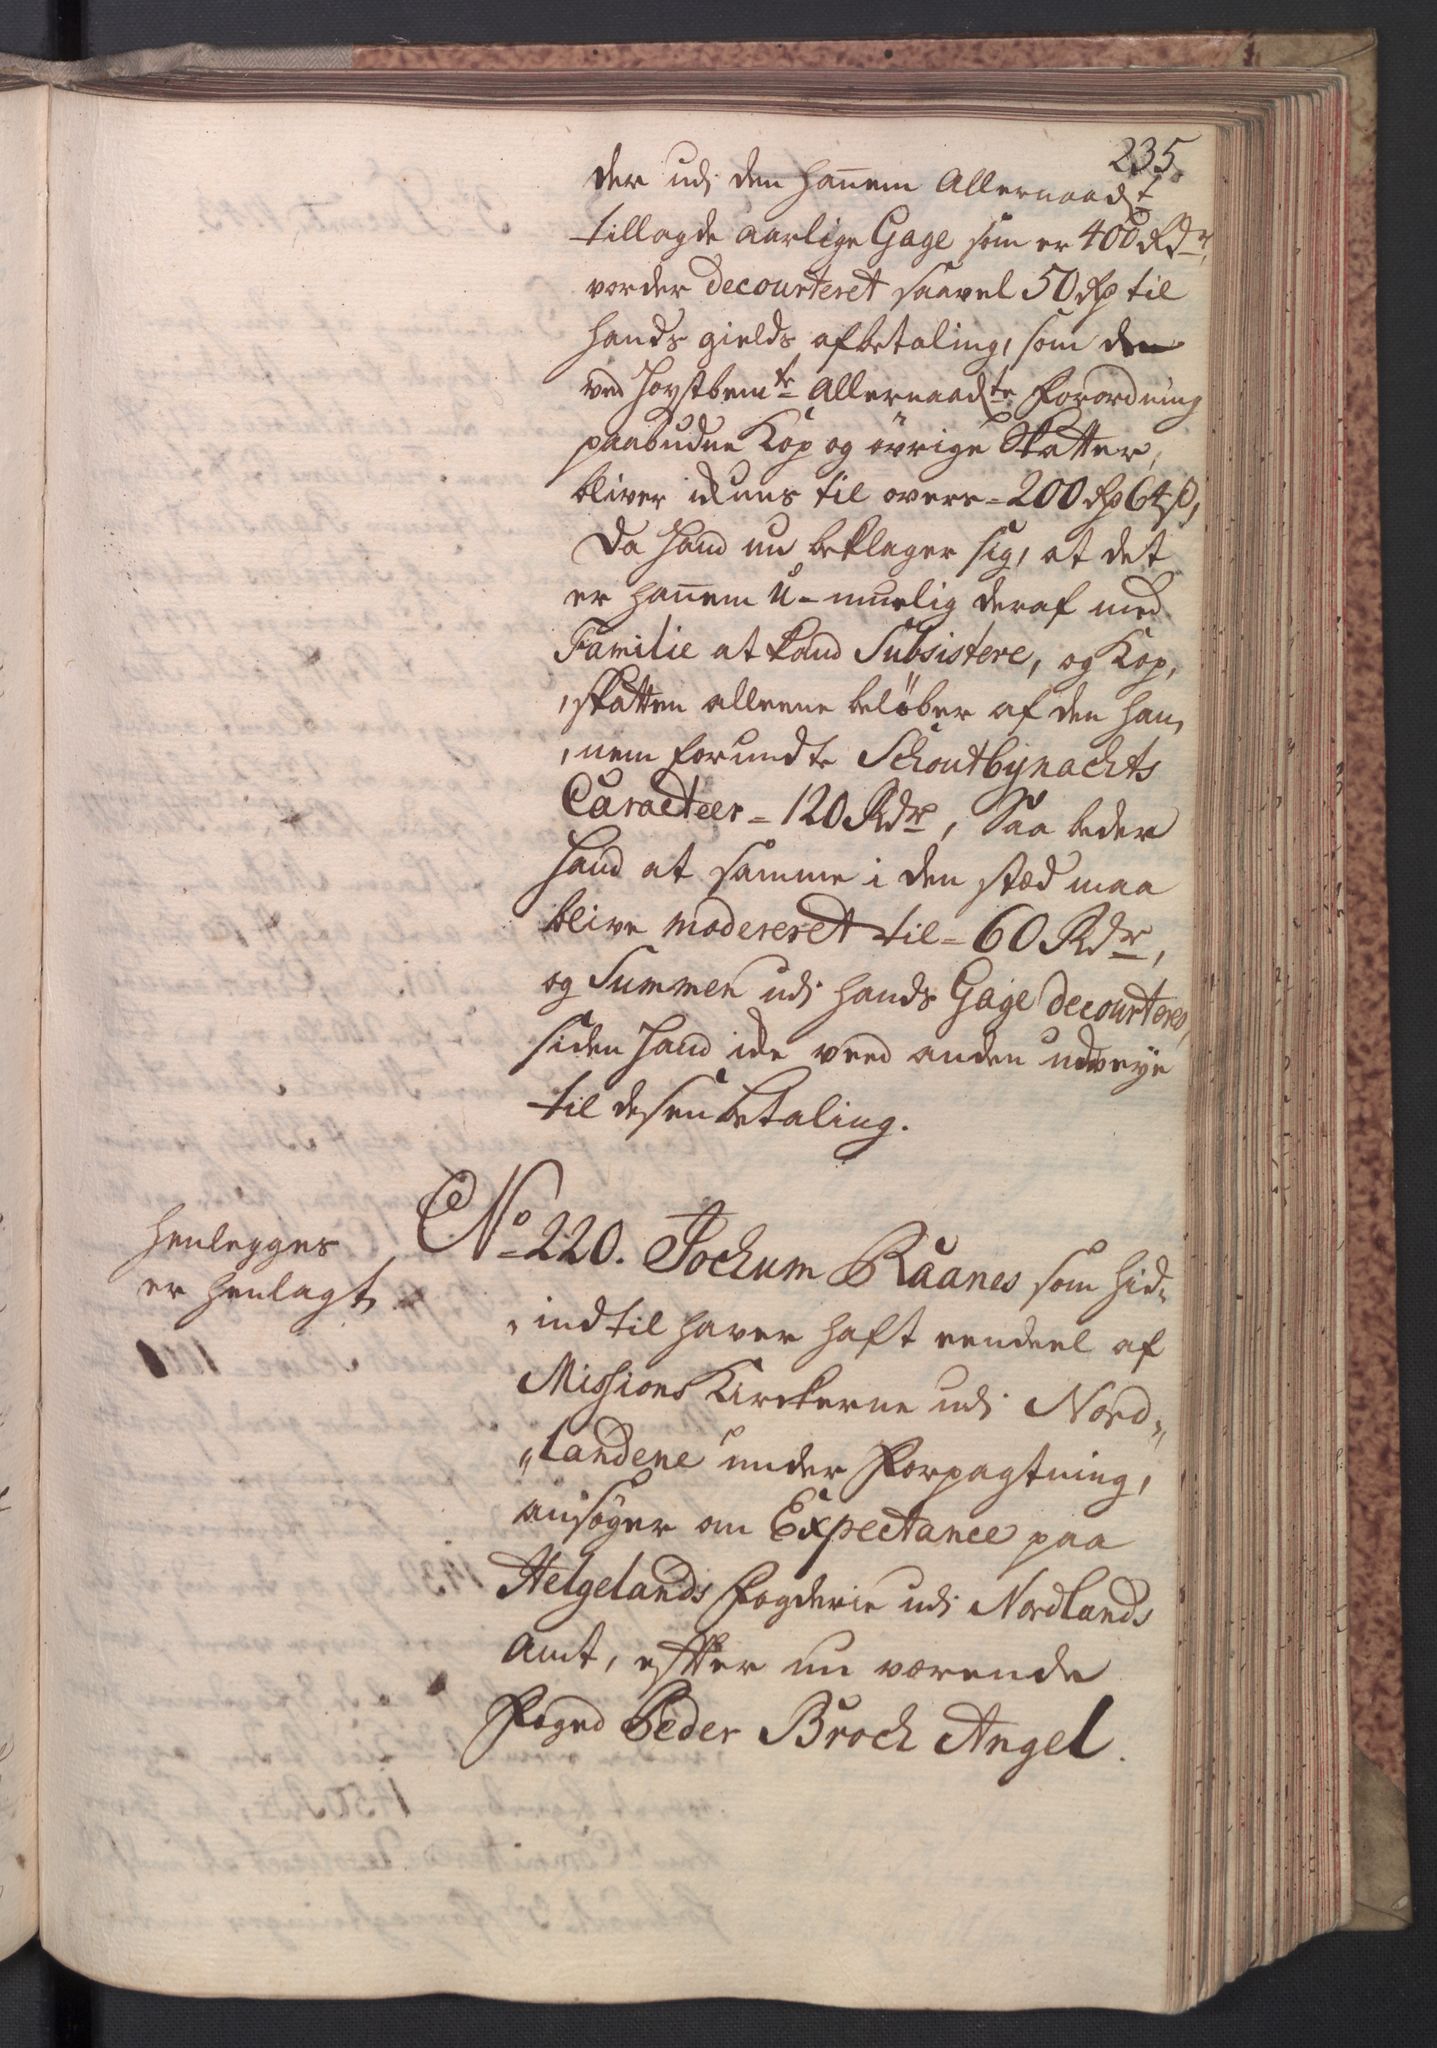 235.
der udi den hannem Allernaadst
tillagde aarlige Gage som er 400 Rdr,
vorder decourteret saavel 50 Rd til
hands gields afbetaling, som den
ved Høystbemte Allernaadste Forordning
paabudne Kop og övrige Skatter,
bliver ickuns til overs = 200 Rd 64 s,
Da hand nu beklager sig, at det
er hannem U-muelig deraf med
Familie at kand Subsistere, og Kop,
,skatten alleene beløber af den han,
,nem forundte Schoutbynachts
Caracteer = 120 Rdr, Saa beder
hand at samme i den stæd maa
blive modereret til = 60 Rdr,
og Summen udi hands Gage decourteres,
siden hand icke veed anden udveye
til desen betaling.
Henlegges
er henlagt
No 220. Jochum Raanes som hid,,
,,indtil haver haft eendeel af
Missions Kirckerne udi Nord,,
,,landene under Forpagtning,
ansøger om Expectance paa
Helgelands Fogderie udi Nordlands
Amt, efter nu værende
Foged Peder Broch Angel.